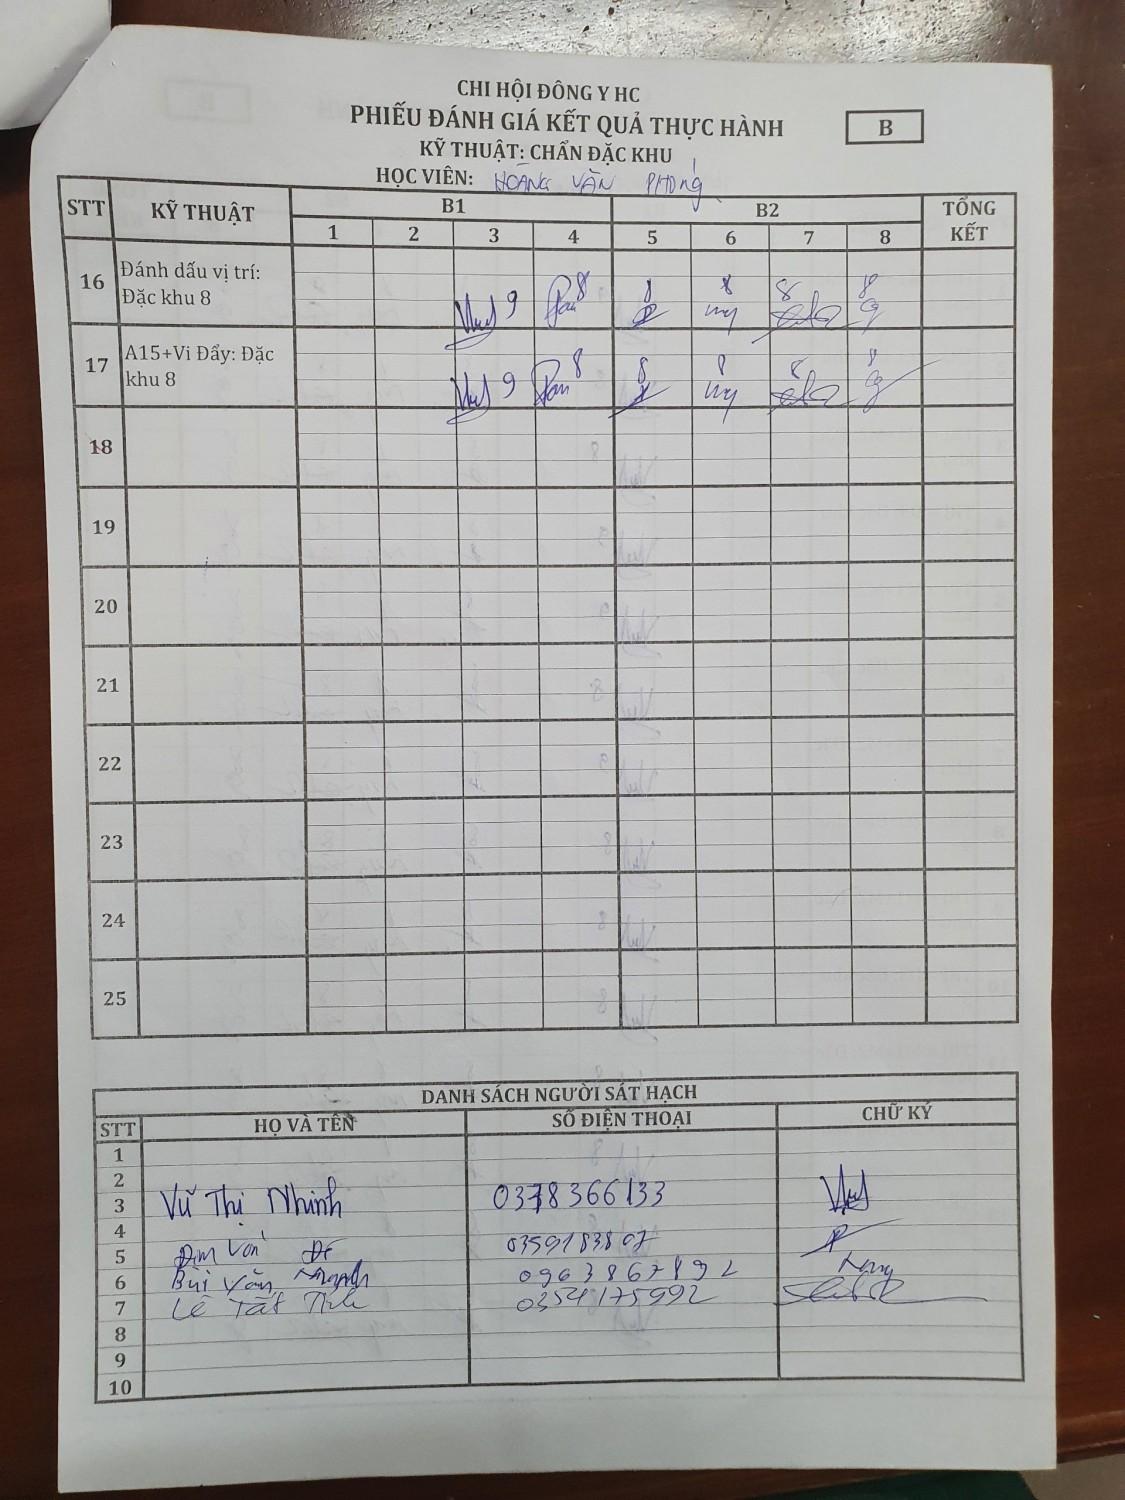 CHI HỘI ĐÔNG Y HC
PHIẾU ĐÁNH GIÁ KẾT QUẢ THỰC HÀNH
B
KỸ THUẬT: CHẨN ĐẶC KHU
HỌC VIÊN: HOÀNG VĂN PHONG
STT KỸ THUẬT B1 B2 TỔNG KẾT
1 2 3 4 5 6 7 8
16 Đánh dấu vị trí: Đặc khu 8 9 8 8 8 8 8
17 A15+Vi Đẩy: Đặc khu 8 9 8 8 8 8 8
18
19
20
21
22
23
24
25
DANH SÁCH NGƯỜI SÁT HẠCH
STT HỌ VÀ TÊN SỐ ĐIỆN THOẠI CHỮ KÝ
1
2
3 Vũ Thị Nhinh 0378366133
4
5 Văn 0359183807
6 Bùi Văn 0963867892
7 Lê Tất 0354175992
8
9
10